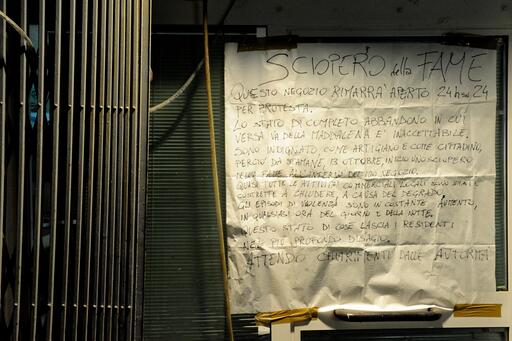 SCIOPERO della FAME
QUESTO NEGOZIO RIMARRA' APERTO 24h su 24
PER PROTESTA.
LO STATO DI COMPLETO ABBANDONO IN CUI
VERSA VIA DELLA MADDALENA E' INACCETTABILE.
SONO INDIGNATO COME ARTIGIANO E COME CITTADINO,
PERCIO' DA STAMANE, 13 OTTOBRE, INIZIO UNO SCIOPERO
DELLA FAME ALL'INTERNO DEL MIO NEGOZIO.
QUASI TUTTE LE ATTIVITA' COMMERCIALI LOCALI SONO STATE
COSTRETTE A CHIUDERE A CAUSA DEL DEGRADO.
GLI EPISODI DI VIOLENZA SONO IN COSTANTE AUMENTO,
IN QUALSIASI ORA DEL GIORNO E DELLA NOTTE.
QUESTO STATO DI COSE LASCIA I RESIDENTI
NEL PIU' PROFONDO DISAGIO.
ATTENDO CHIARIMENTI DALLE AUTORITA'